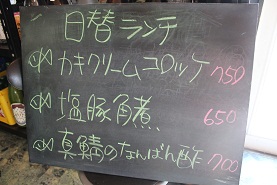 日替ランチ
カキクリームコロッケ 750
塩豚角煮 650
真鯖のなんばん酢 700